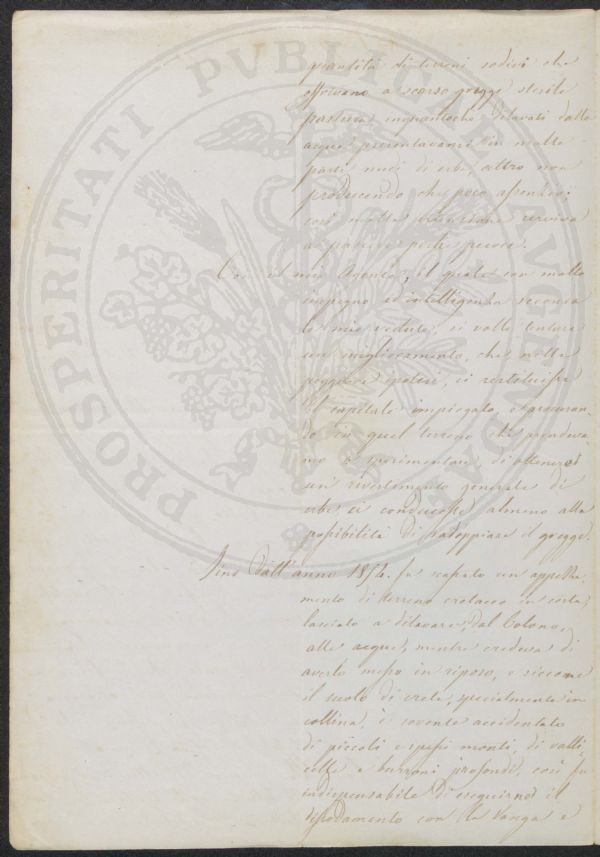 quantità di terreni sodivi che
offrivano a scarso gregge sterile
pastura inquantochè dilavati dalle
acque presentavansi in molte
parti nudi di erbe, altro non
producendo che poco
così molta estensione serviva
a pascere poche pecore.
Con il mio Agente, il quale con molto
impegno ed intelligenza seconda
le mie vedute, si volle tentare
un miglioramento, che nella
peggiore ipotesi, ci restituisse
il capitale impiegato, e procuran-
do in quel terreno che prendeva-
mo a sperimentare di ottenere
un rivestimento generale di
erbe ci conducesse almeno alla
possibilità di raddoppiare il gregge.
Sino dall'anno 1854. fu un appezza-
mento di terreno cretaceo in costa,
lasciato a dilavare, dal Colono,
alle acque, mentre credeva di
averlo messo in riposo, e siccome
il suolo di creta, specialmente in
collina, è sovente accidentato
di piccoli e spessi monti, di valli
e burroni profondi, così fu
indispensabile di eseguirne il
dissodamento con la Vanga e
PROSPERITATI PVBLICAE AVGENDAE